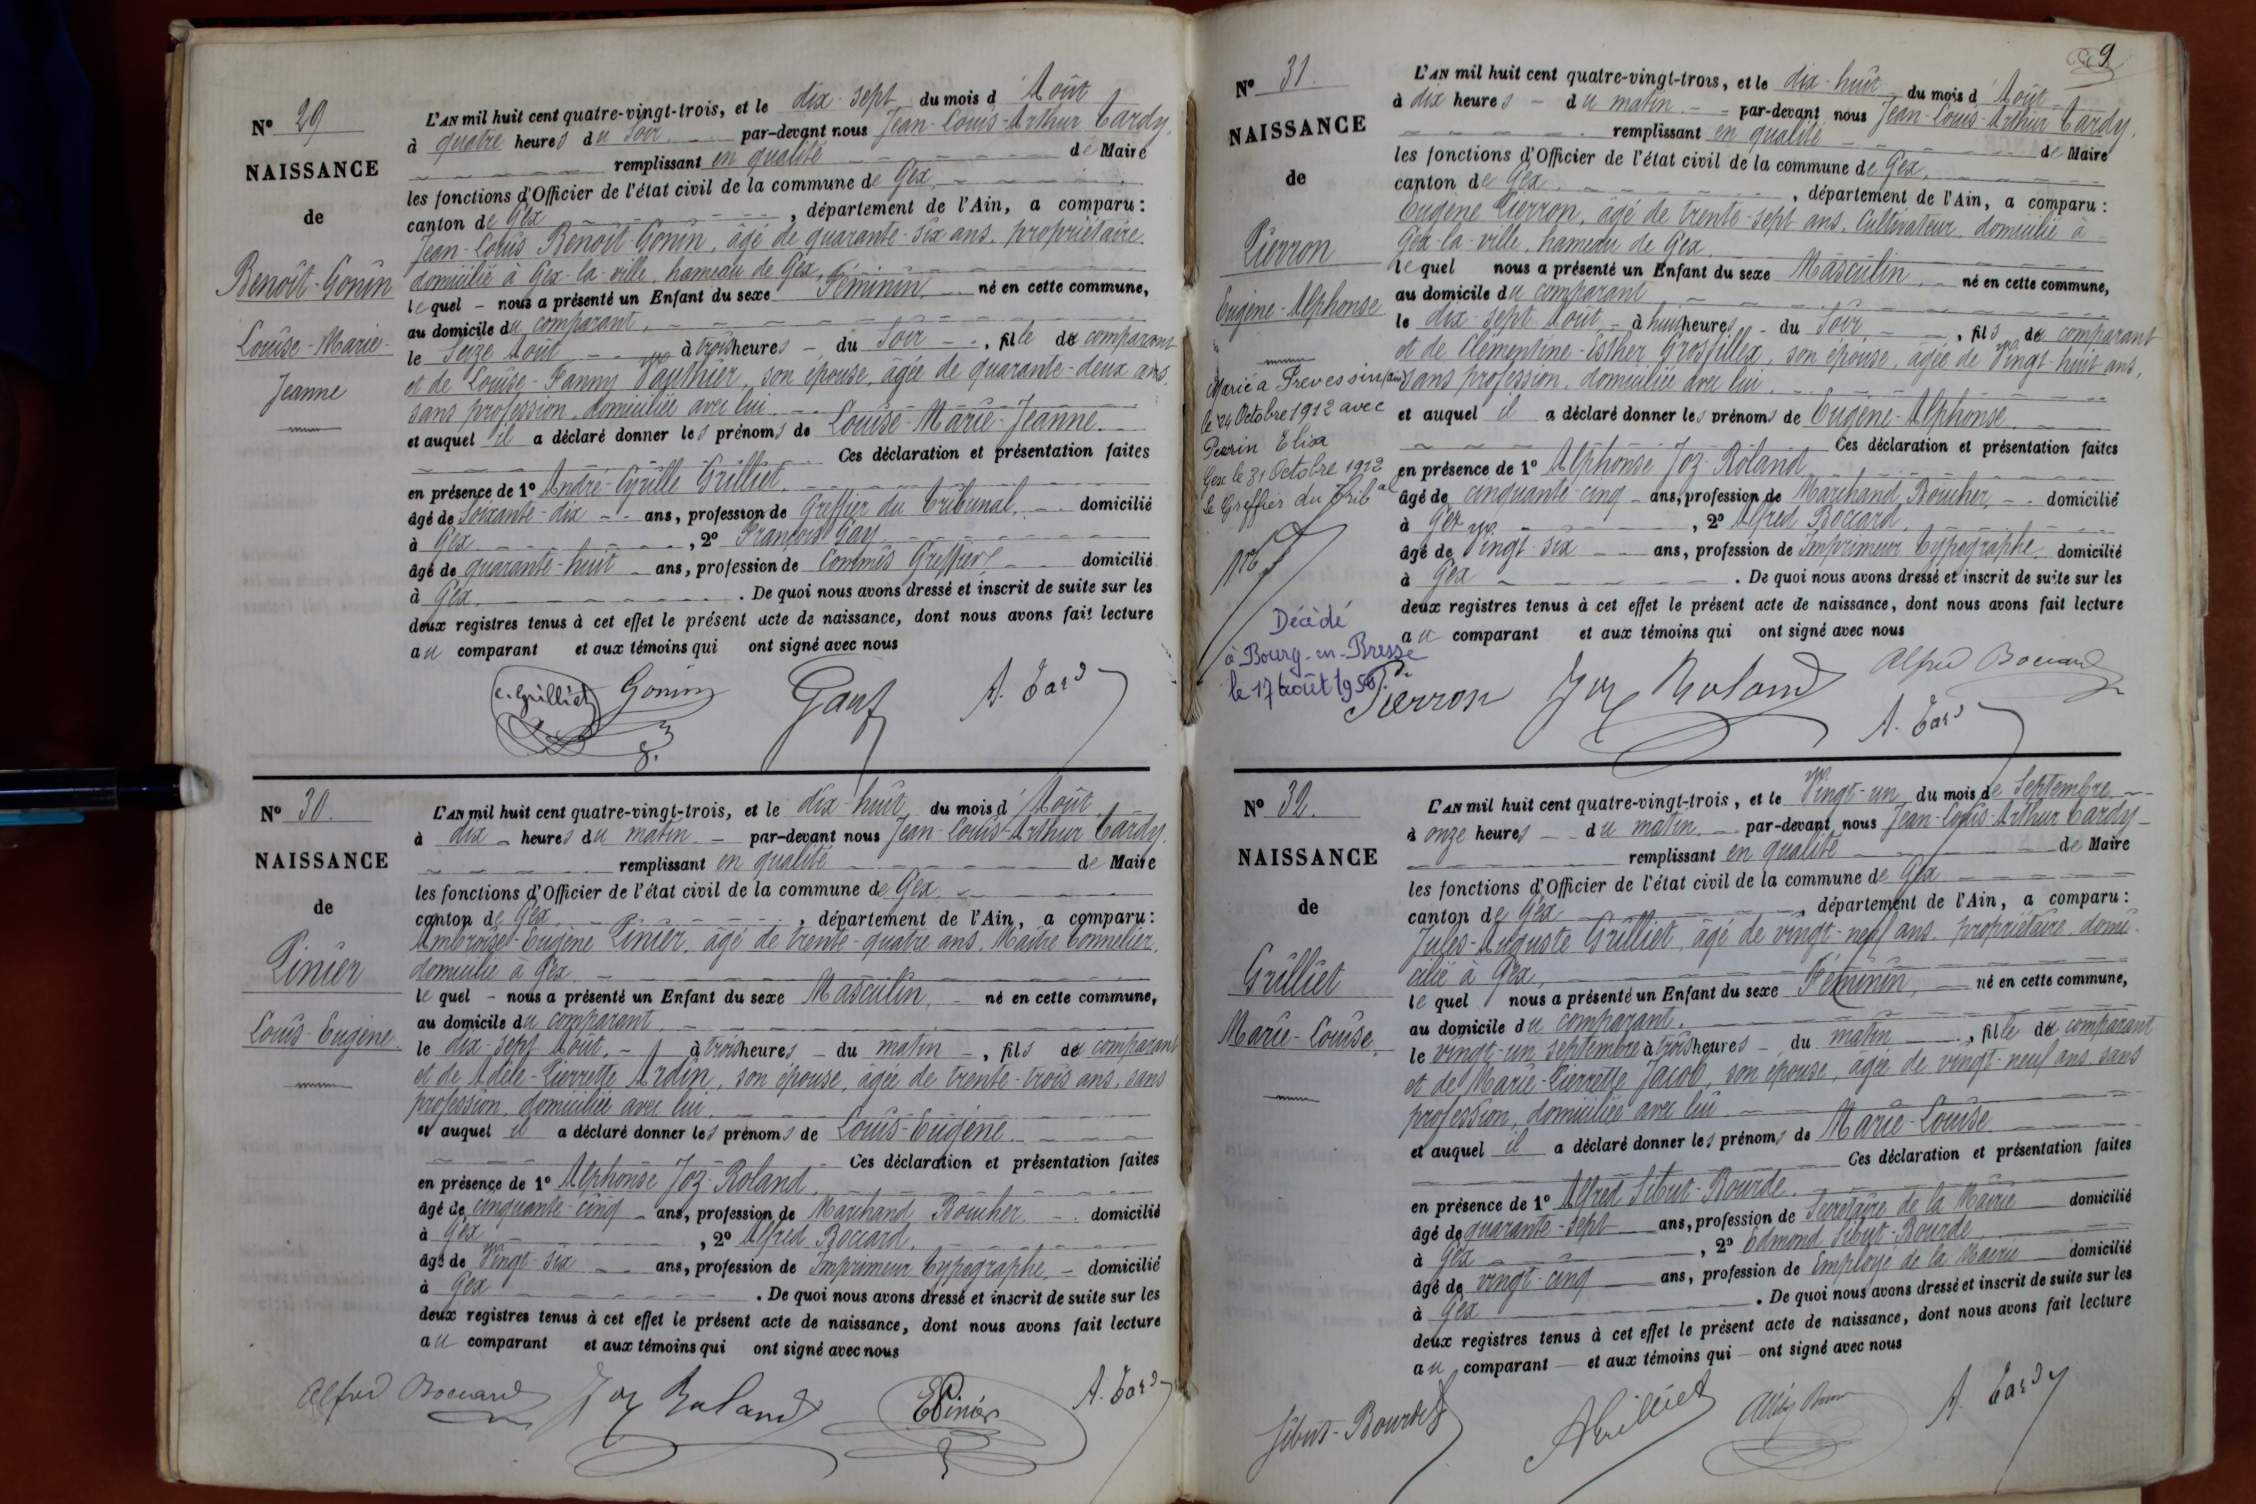 Nº 29
NAISSANCE
de
Benoît-Gonin
Louise-Marie-
Jeanne
L'AN mil huit cent quatre-vingt-trois, et le dix-sept du mois d'Août
à quatre heures du soir par-devant nous Jean-Louis-Arthur Tardy,
remplissant en qualité de Maire
les fonctions d'Officier de l'état civil de la commune de Gex,
canton de Gex, département de l'Ain, a comparu:
Jean-Louis Benoît-Gonin, âgé de quarante-six ans, propriétaire,
domicilié à Gex-la-ville, hameau de Gex,
lequel nous a présenté un Enfant du sexe Féminin, né en cette commune,
au domicile du comparant,
le Seize Août à trois heures du Soir, fille du comparant
et de Louise-Fanny Vauthier, son épouse, âgée de quarante-deux ans,
sans profession, domiciliée avec lui
et auquel il a déclaré donner les prénoms de Louise-Marie-Jeanne.
Ces déclaration et présentation faites
en présence de 1º André-Cyrille Grilliet,
âgé de Soixante-dix ans, profession de Greffier du Tribunal, domicilié
à Gex, 2º François Gay
âgé de quarante-huit ans, profession de Commis Greffier domicilié
à Gex. De quoi nous avons dressé et inscrit de suite sur les
deux registres tenus à cet effet le présent acte de naissance, dont nous avons fait lecture
au comparant et aux témoins qui ont signé avec nous
C. Grilliet Gonin Gay A. Tardy
Nº 30.
NAISSANCE
de
Pinier
Louis-Eugène.
L'AN mil huit cent quatre-vingt-trois, et le dix-huit du mois d'Août
à dix heures du matin par-devant nous Jean-Louis-Arthur Tardy,
remplissant en qualité de Maire
les fonctions d'Officier de l'état civil de la commune de Gex
canton de Gex, département de l'Ain, a comparu:
Ambroise-Eugène Pinier, âgé de trente-quatre ans, Maître Tonnelier,
domicilié à Gex
lequel nous a présenté un Enfant du sexe Masculin, né en cette commune,
au domicile du comparant,
le dix-sept Août, à trois heures du matin, fils du comparant
et de Adèle-Pierrette Ardin, son épouse, âgée de trente-trois ans, sans
profession, domiciliée avec lui,
et auquel il a déclaré donner les prénoms de Louis-Eugène
Ces déclaration et présentation faites
en présence de 1º Alphonse Joz-Roland,
âgé de cinquante-cinq ans, profession de Marchand Boucher, domicilié
à Gex, 2º Alfred Boccard,
âgé de Vingt-six ans, profession de Imprimeur Typographe, domicilié
à Gex. De quoi nous avons dressé et inscrit de suite sur les
deux registres tenus à cet effet le présent acte de naissance, dont nous avons fait lecture
au comparant et aux témoins qui ont signé avec nous
Alfred Boccard Joz Roland EPinier A. Tardy
9
Nº 31.
NAISSANCE
de
Pierron
Eugène-Alphonse
Marié à Prevessin (Ain)
le 24 Octobre 1912 avec
Perrin Elisa
Gex le 31 Octobre 1912
Le Greffier du Tribal
Décédé
à Bourg-en-Bresse
le 17 août 1956.
L'AN mil huit cent quatre-vingt-trois, et le dix-huit du mois d'Août
à dix heures du matin par-devant nous Jean-Louis-Arthur Tardy,
remplissant en qualité de Maire
les fonctions d'Officier de l'état civil de la commune de Gex,
canton de Gex, département de l'Ain, a comparu:
Eugène Pierron, âgé de trente-sept ans, Cultivateur, domicilié à
Gex-la-ville, hameau de Gex
lequel nous a présenté un Enfant du sexe Masculin, né en cette commune,
au domicile du comparant
le dix-sept Août, à huit heures du Soir, fils du comparant
et de Clémentine-Esther Grosfillex, son épouse, âgée de Vingt-huit ans,
sans profession, domiciliée avec lui
et auquel il a déclaré donner les prénoms de Eugène-Alphonse
Ces déclaration et présentation faites
en présence de 1º Alphonse Joz-Roland
âgé de cinquante-cinq ans, profession de Marchand Boucher, domicilié
à Gex, 2º Alfred Boccard,
âgé de Vingt-six ans, profession de Imprimeur Typographe, domicilié
à Gex. De quoi nous avons dressé et inscrit de suite sur les
deux registres tenus à cet effet le présent acte de naissance, dont nous avons fait lecture
au comparant et aux témoins qui ont signé avec nous
Pierron Joz Roland Alfred Boccard
A. Tardy
Nº 32.
NAISSANCE
de
Grilliet
Marie-Louise.
L'AN mil huit cent quatre-vingt-trois, et le Vingt-un du mois de Septembre
à onze heures du matin par-devant nous Jean-Louis-Arthur Tardy
remplissant en qualité de Maire
les fonctions d'Officier de l'état civil de la commune de Gex
canton de Gex, département de l'Ain, a comparu:
Jules-Auguste Grilliet, âgé de vingt-neuf ans, propriétaire, domi-
cilié à Gex,
lequel nous a présenté un Enfant du sexe Féminin, né en cette commune,
au domicile du comparant,
le vingt-un septembre à trois heures du matin, fille du comparant
et de Marie-Pierrette Jacob, son épouse, âgée de vingt-neuf ans, sans
profession, domiciliée avec lui
et auquel il a déclaré donner les prénoms de Marie-Louise
Ces déclaration et présentation faites
en présence de 1º Alfred Sibut-Bourde,
âgé de quarante-sept ans, profession de Secrétaire de la Mairie domicilié
à Gex, 2º Edmond Sibut-Bourde
âgé de vingt-cinq ans, profession de Employé de la Mairie domicilié
à Gex. De quoi nous avons dressé et inscrit de suite sur les
deux registres tenus à cet effet le présent acte de naissance, dont nous avons fait lecture
au comparant et aux témoins qui ont signé avec nous
Sibut-Bourde AGrilliet A. Tardy